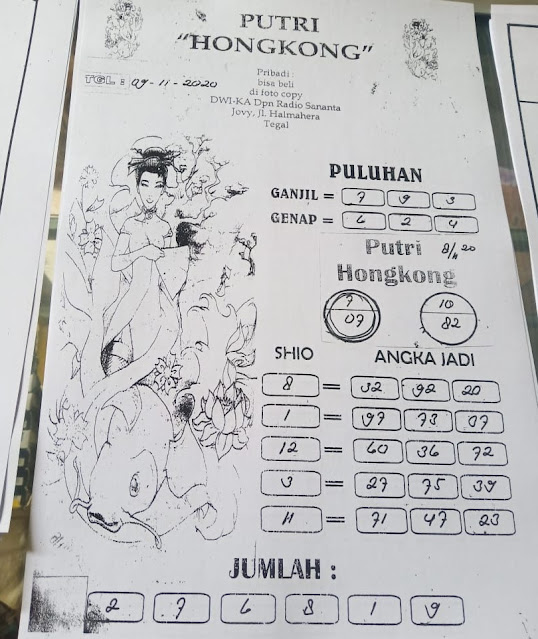 PUTRI
"HONGKONG"
Pribadi :
bisa beli
di foto copy
DWI-KA Dpn Radio Sananta
Jovy, Jl. Halmahera
Tegal
TGL : 09-11-2020
PULUHAN
GANJIL = 7 9 3
GENAP = 6 2 4
Putri 8/11 20
Hongkong
7 10
07 82
SHIO ANGKA JADI
8 = 32 92 20
1 = 97 73 07
12 = 60 36 72
3 = 27 75 39
11 = 71 47 23
JUMLAH :
2 7 6 8 1 9